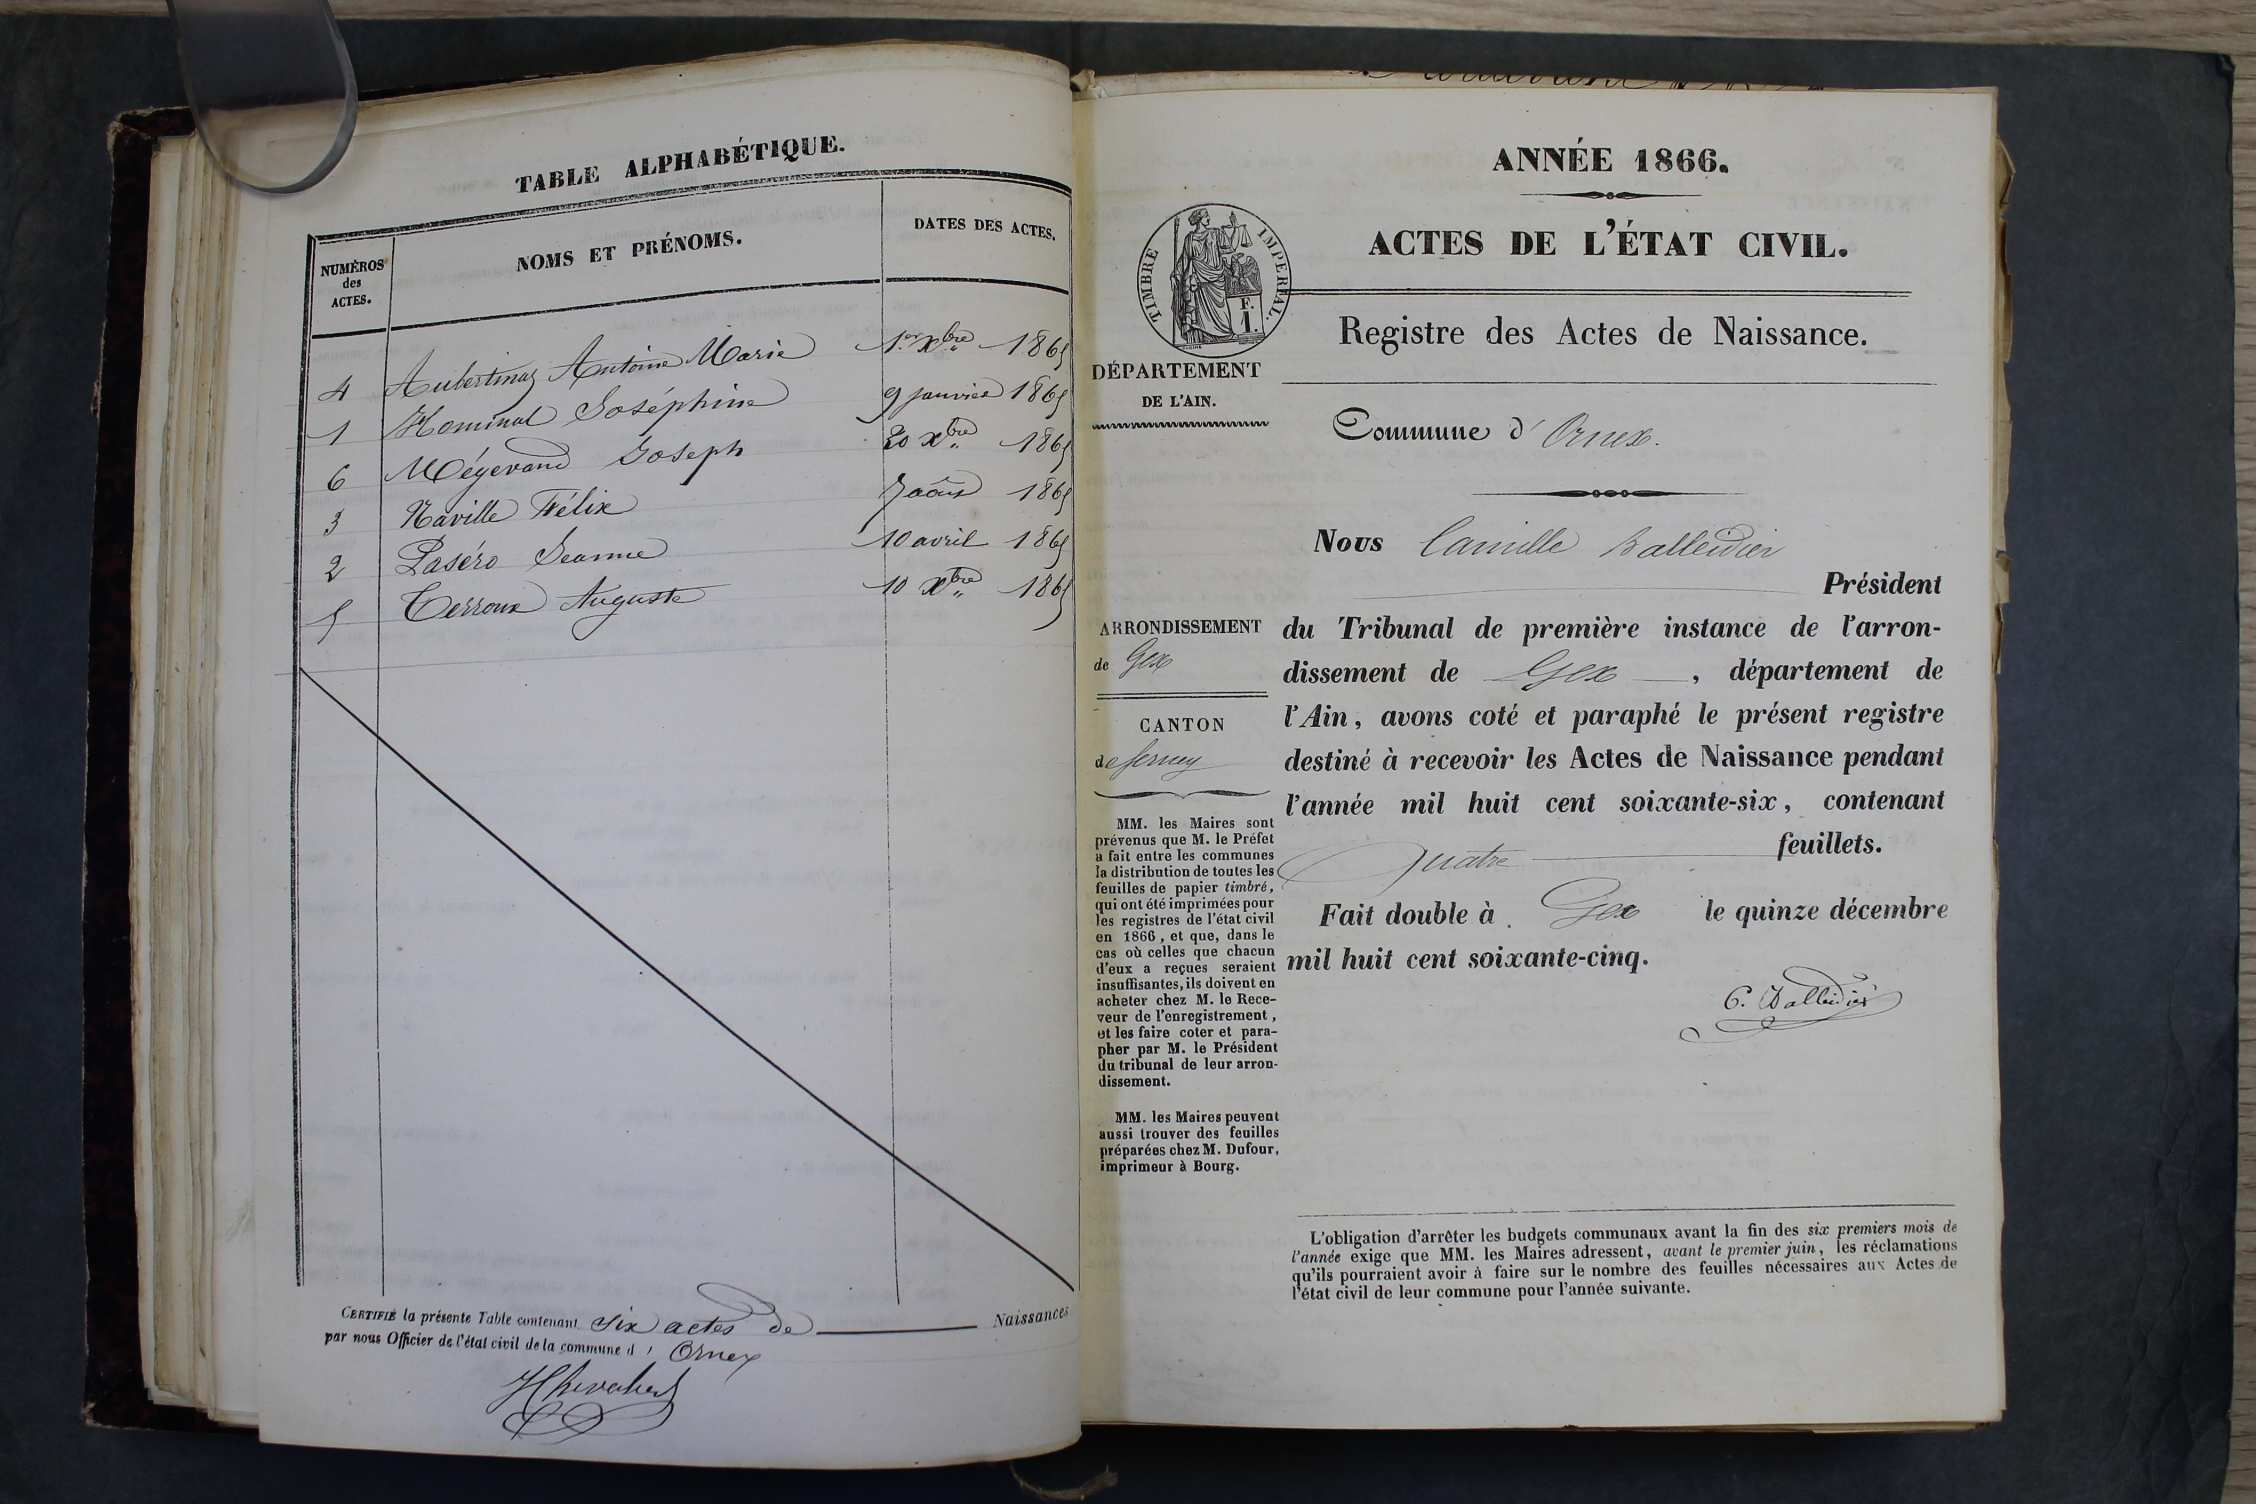 TABLE ALPHABÉTIQUE.
NUMÉROS des ACTES.
NOMS ET PRÉNOMS.
DATES DES ACTES.
4 Aubertinaz Antoine Marie 1er Xbre 1865
1 Hominal Joséphine 9 janvier 1865
6 Mégevand Joseph 20 Xbre 1865
3 Naville Félix 7 août 1865
2 Paséro Jeanne 10 avril 1865
5 Terroux Auguste 10 Xbre 1865
CERTIFIÉ la présente Table contenant six actes de Naissances
par nous Officier de l'état civil de la commune d' Ornex
ANNÉE 1866.
ACTES DE L'ÉTAT CIVIL.
TIMBRE IMPÉRIAL.
F.
1.
Registre des Actes de Naissance.
DÉPARTEMENT
DE L'AIN.
Commune d' Ornex.
ARRONDISSEMENT
de Gex
CANTON
de Ferney
MM. les Maires sont
prévenus que M. le Préfet
a fait entre les communes
la distribution de toutes les
feuilles de papier timbré,
qui ont été imprimées pour
les registres de l'état civil
en 1866, et que, dans le
cas où celles que chacun
d'eux a reçues seraient
insuffisantes, ils doivent en
acheter chez M. le Rece-
veur de l'enregistrement,
et les faire coter et para-
pher par M. le Président
du tribunal de leur arron-
dissement.
MM. les Maires peuvent
aussi trouver des feuilles
préparées chez M. Dufour,
imprimeur à Bourg.
Nous Camille Balleidier
Président
du Tribunal de première instance de l'arron-
dissement de Gex, département de
l'Ain, avons coté et paraphé le présent registre
destiné à recevoir les Actes de Naissance pendant
l'année mil huit cent soixante-six, contenant
Quatre feuillets.
Fait double à Gex le quinze décembre
mil huit cent soixante-cinq.
C. Balleidier
L'obligation d'arrêter les budgets communaux avant la fin des six premiers mois de
l'année exige que MM. les Maires adressent, avant le premier juin, les réclamations
qu'ils pourraient avoir à faire sur le nombre des feuilles nécessaires aux Actes de
l'état civil de leur commune pour l'année suivante.